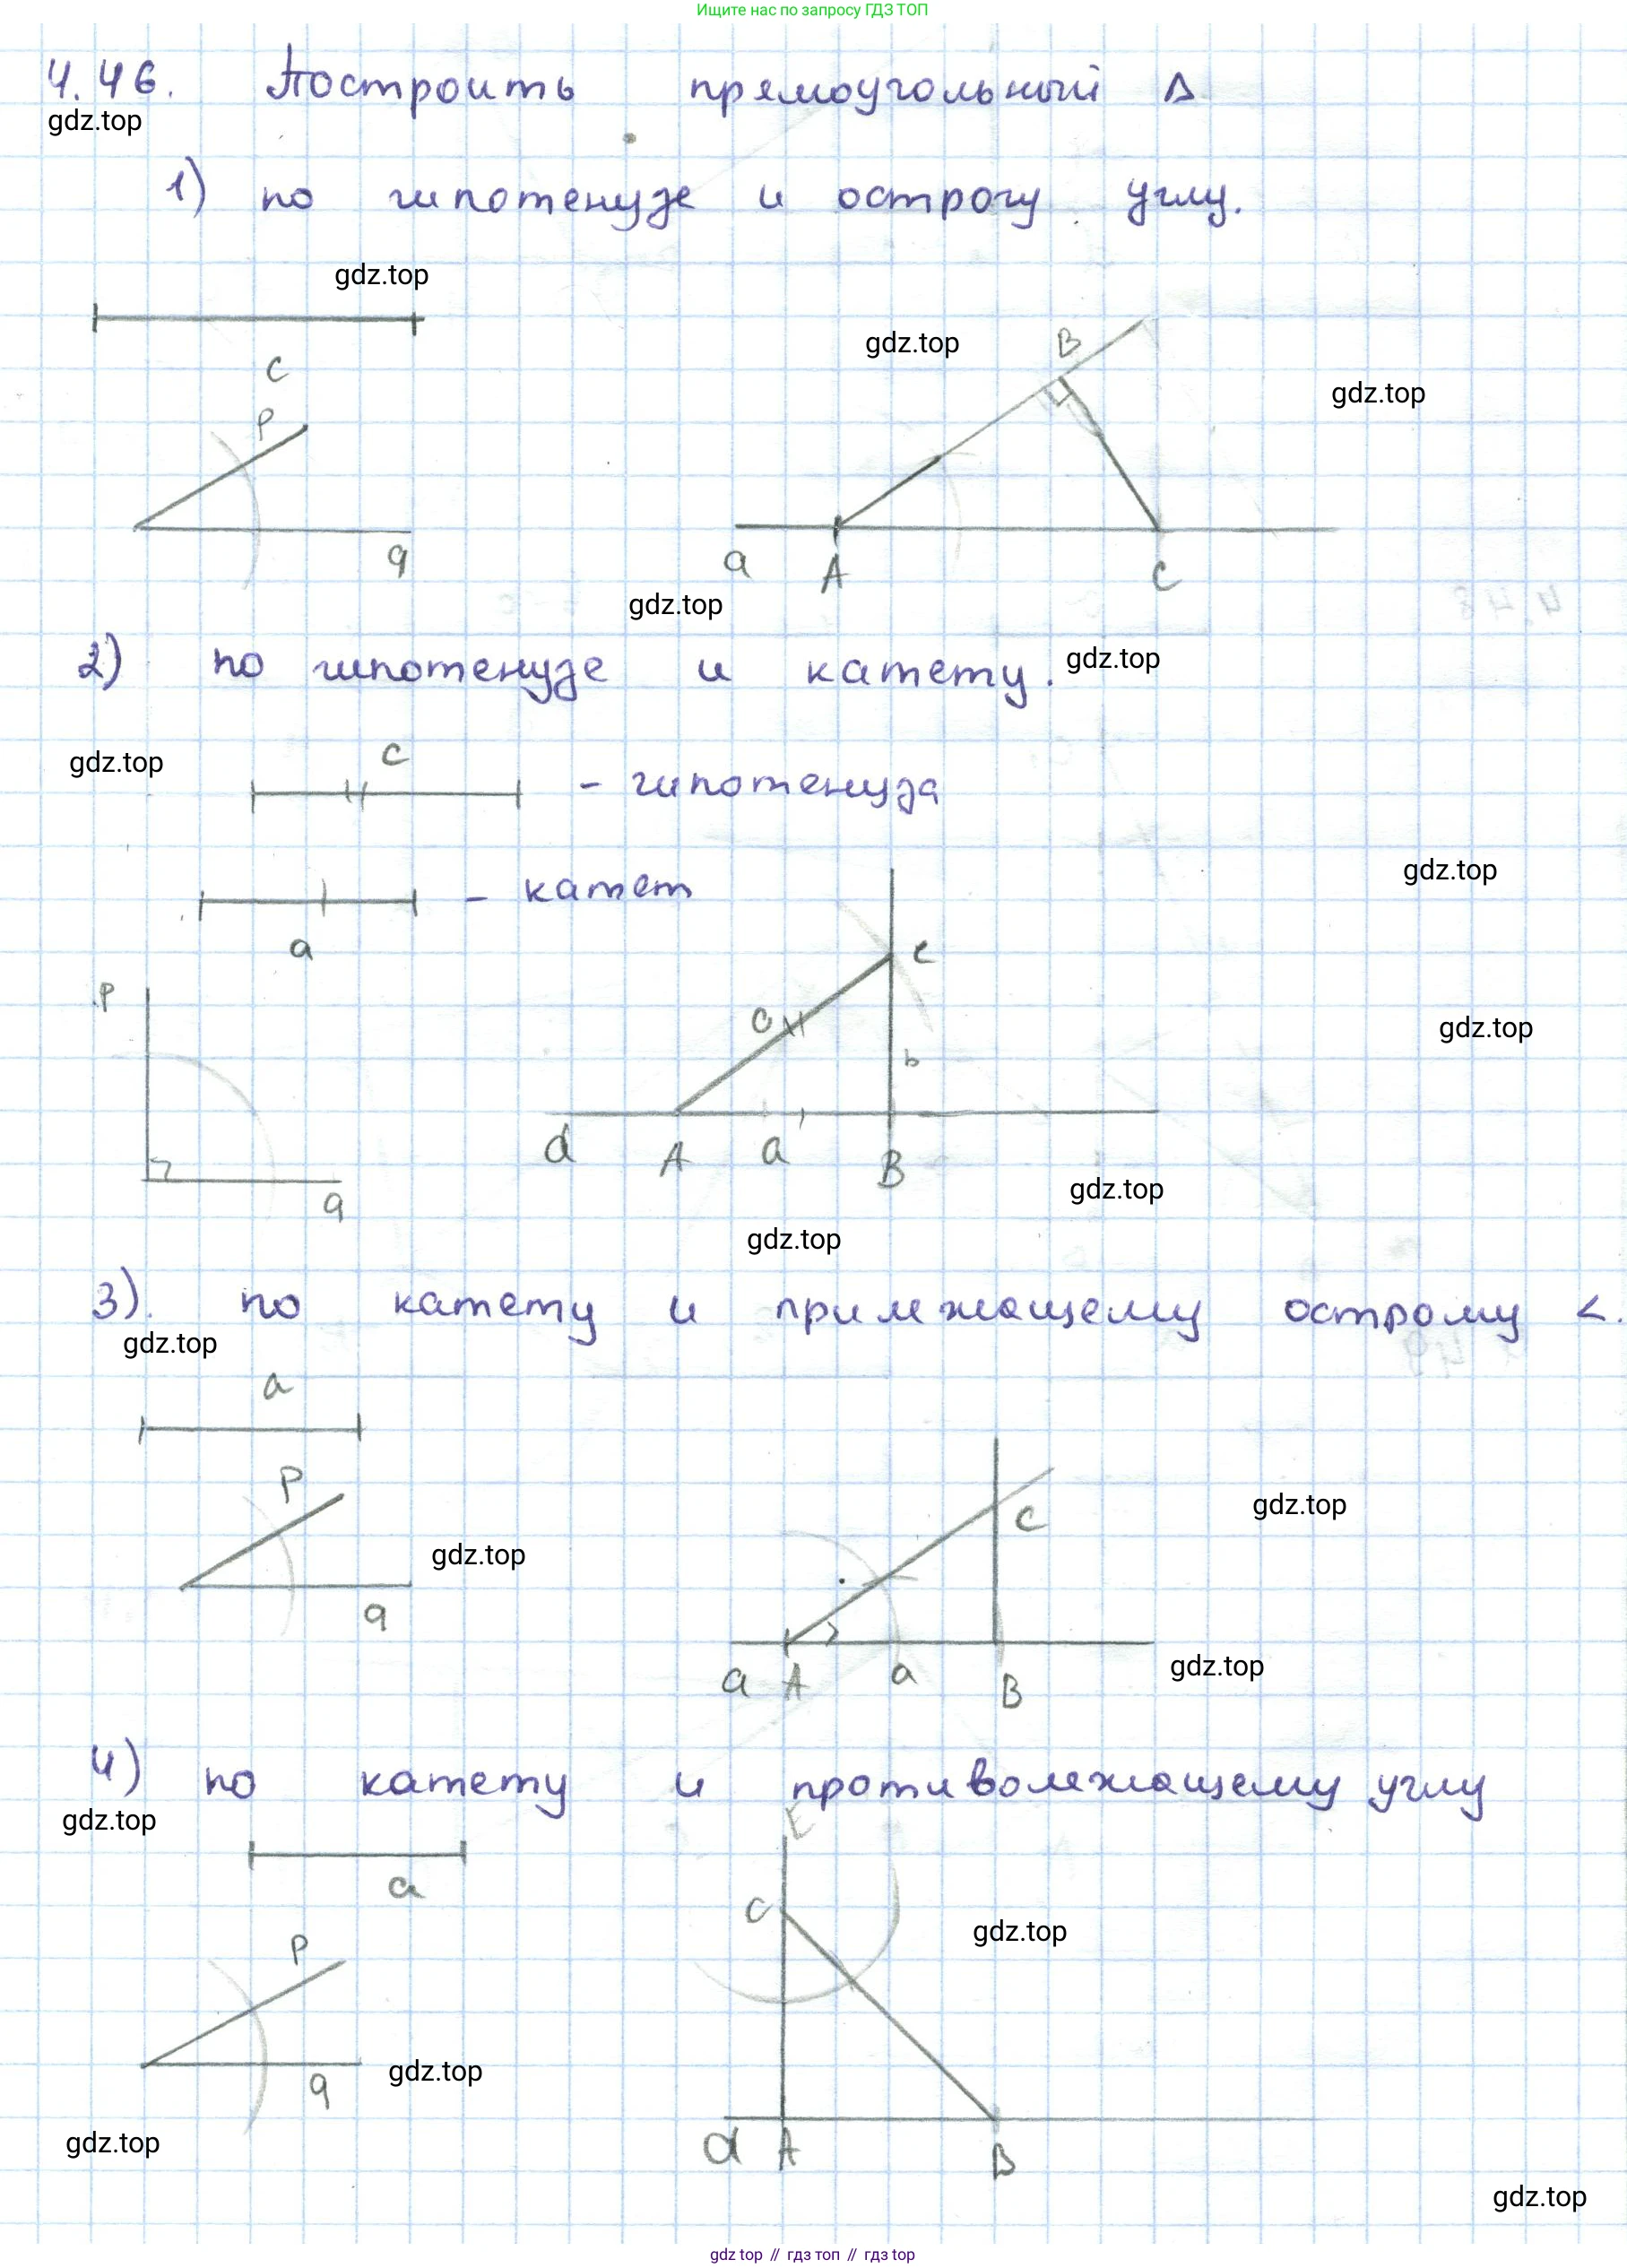 Ищите нас по запросу ГДЗ ТОП
4.46. Построить прямоугольный Δ
gdz.top
1) по гипотенузе и острогу углу.
gdz.top
c
gdz.top
B
gdz.top
P
q
a A C
gdz.top
2) по гипотенузе и катету.
gdz.top
gdz.top
c
- гипотенуза
gdz.top
- катет
a
P
c
c
gdz.top
b
d A a B
q
gdz.top
gdz.top
3). по катету и прилежащему острому <.
gdz.top
a
P
C
gdz.top
gdz.top
q
a A a B
gdz.top
4) по катету и противолежащему углу
gdz.top
E
a
C
gdz.top
P
q
gdz.top
d A B
gdz.top
gdz.top
gdz top // гдз топ // гдз top